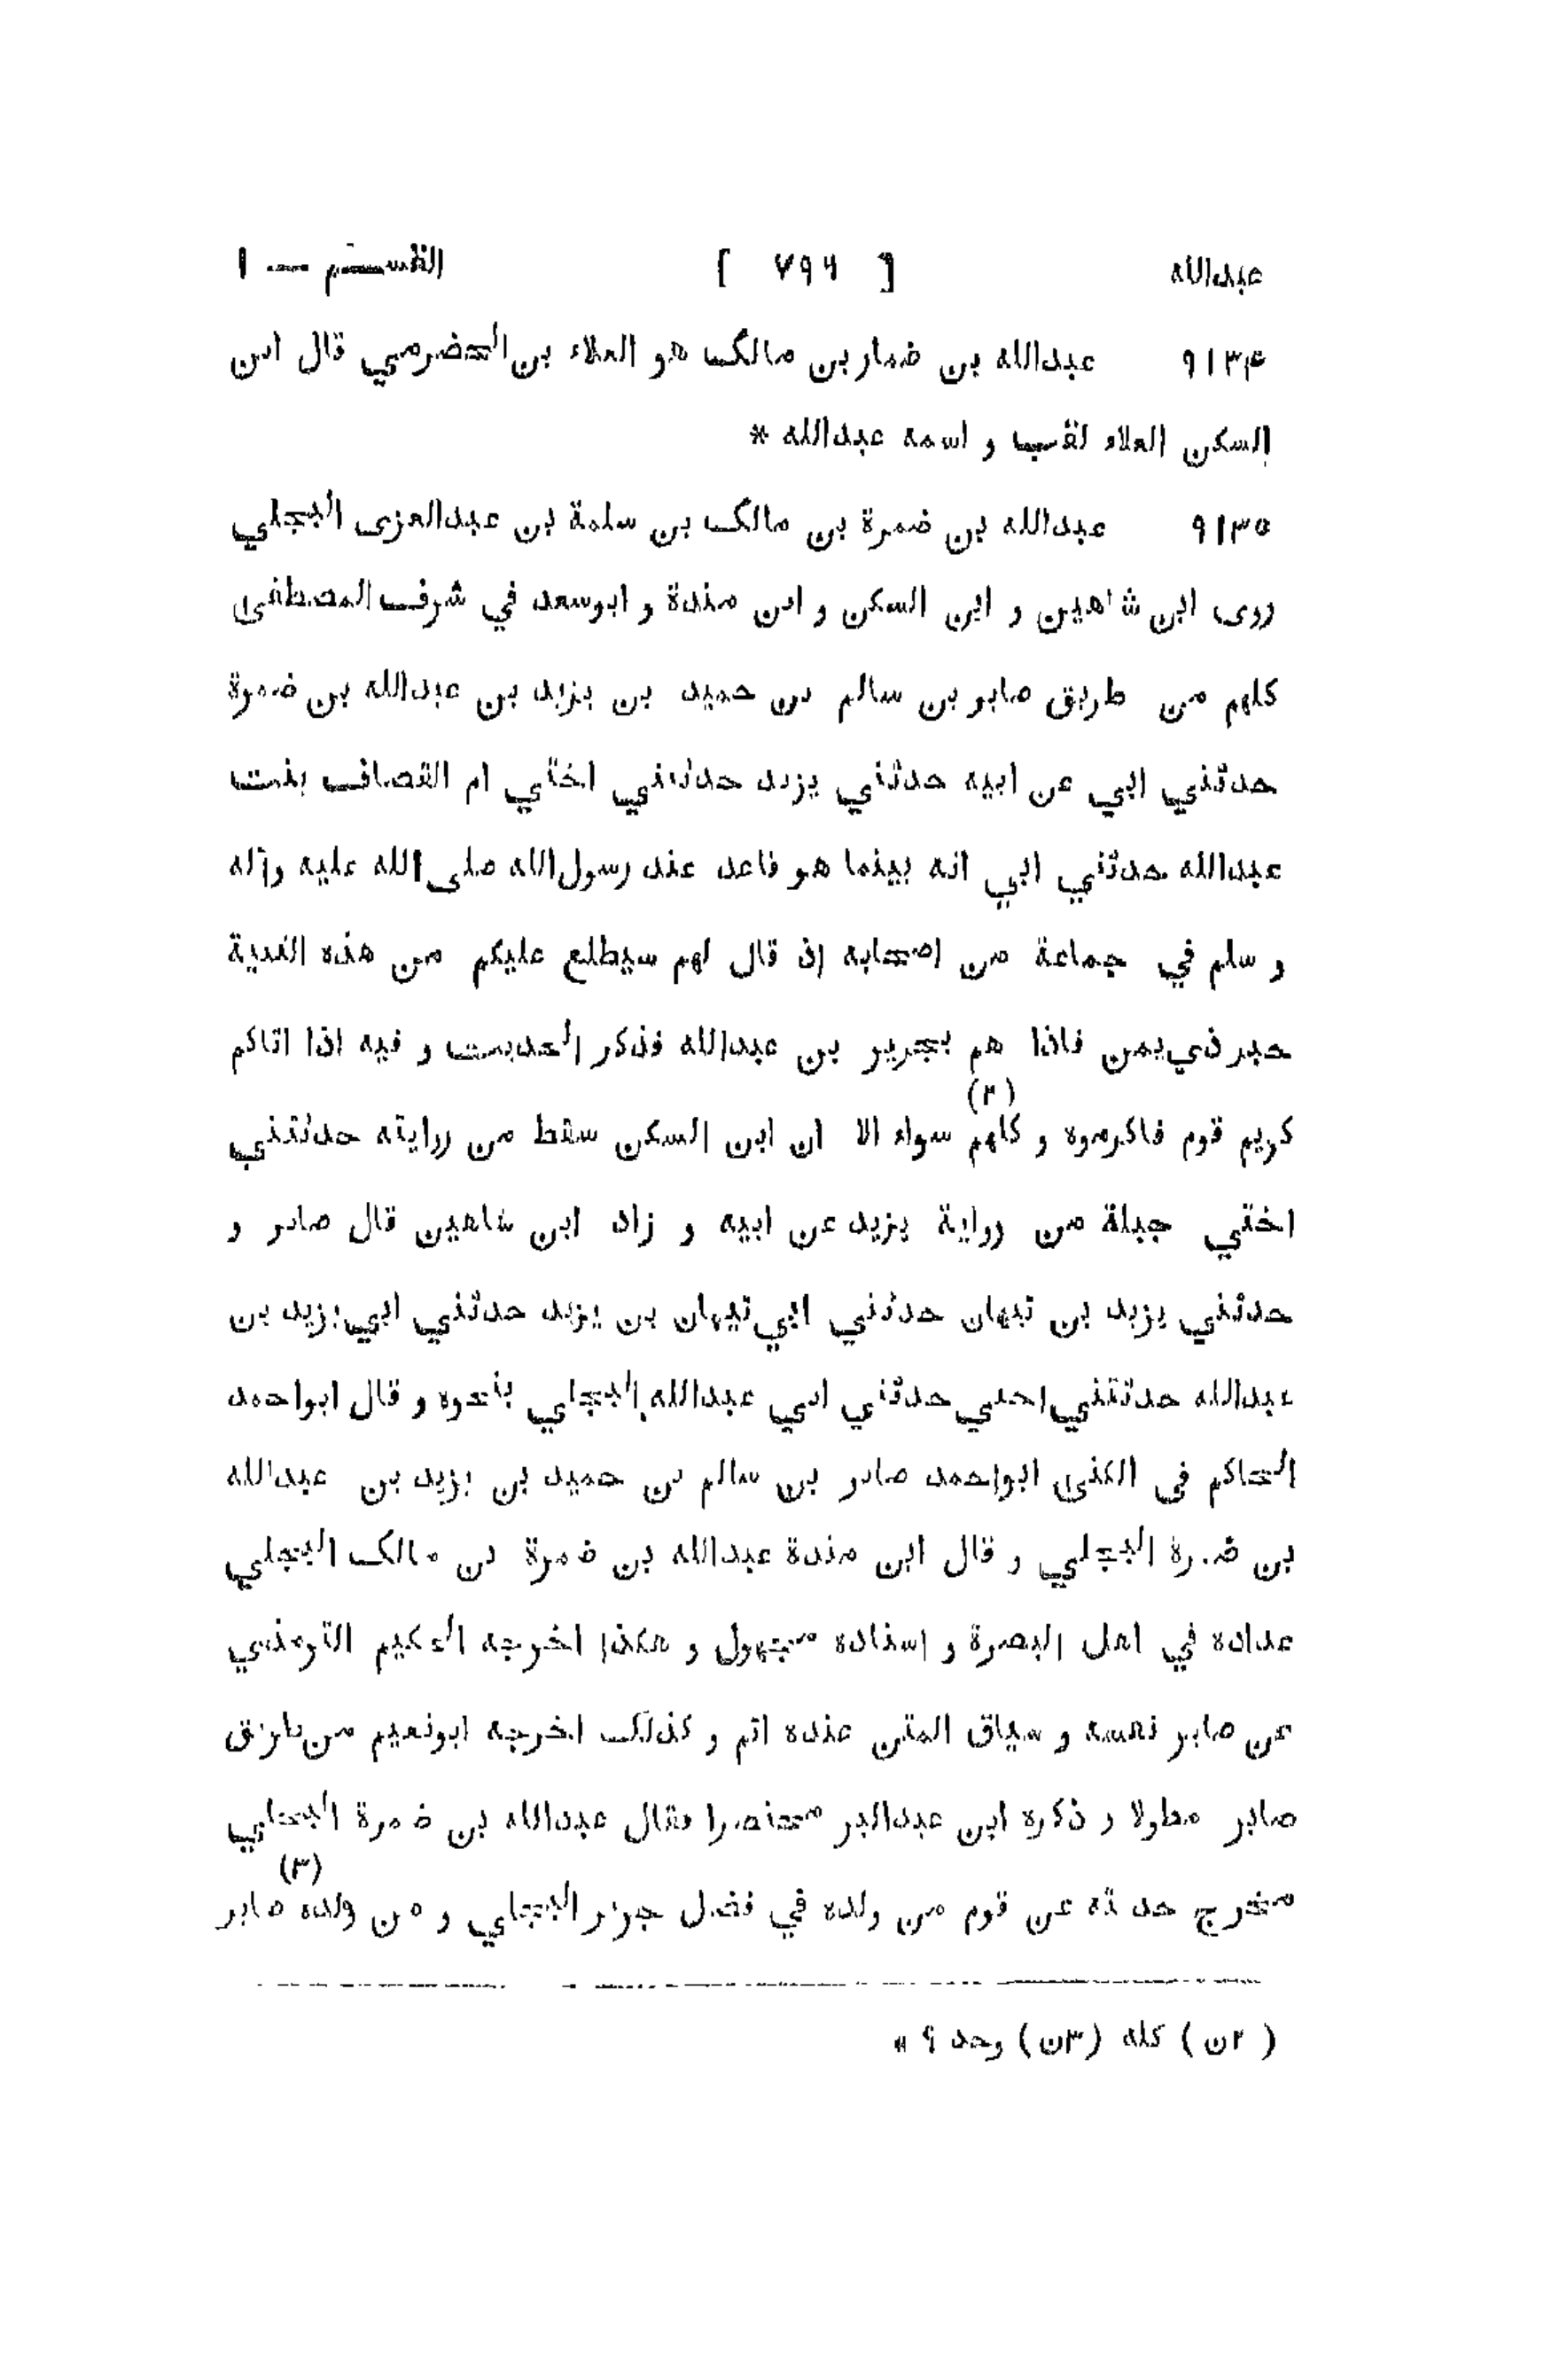 عبدالله [ ٧٩٦ ] القسم — ١
٩١٣۴ عبدالله بن ضمار بن مالک هو العلاء بن الحضرمي قال ابن
السکن العلاء لقب و اسمه عبدالله *
٩١٣٥ عبدالله بن ضمرة بن مالک بن سلمة بن عبدالعزى البجلي
روى ابن شاهين و ابن السکن و ابن مندة و ابوسعد في شرف المصطفى
کلهم من طريق صابر بن سالم بن حميد بن يزيد بن عبدالله بن ضمرة
حدثني ابي عن ابيه حدثني يزيد حدثتني اختي ام القصاف بنت
عبدالله حدثني ابي انه بينما هو قاعد عند رسول الله صلى الله عليه وآله
و سلم في جماعة من اصحابه إذ قال لهم سيطلع عليکم من هذه الثنية
خير ذي يمن فاذا هم بجرير بن عبدالله فذکر الحديث و فيه اذا اتاکم
کريم قوم فاکرموه و کلهم (٢) سواء الا ان ابن السکن سقط من روايته حدثتني
اختي جبلة من رواية يزيد عن ابيه و زاد ابن شاهين قال صابر و
حدثني يزيد بن تيهان حدثني ابي تيهان بن يزيد حدثني ابي يزيد بن
عبدالله حدثتني اختي حدثني ابي عبدالله البجلي بنحوه و قال ابواحمد
الحاکم فى الکنى ابواحمد صابر بن سالم بن حميد بن يزيد بن عبدالله
بن ضمرة البجلي و قال ابن مندة عبدالله بن ضمرة بن مالک البجلي
عداده في اهل البصرة و اسناده مجهول و هکذا اخرجه الحکيم الترمذي
عن صابر نفسه و سياق المتن عنده اتم و کذلک اخرجه ابونعيم من طريق
صابر مطولا و ذکره ابن عبدالبر مختصرا فقال عبدالله بن ضمرة البجلي
مخرج حديثه عن قوم من ولده في فضل جرير البجلي و من ولده (٣) صابر
( ٢ن ) کله (٣ن) وحد ؟ »